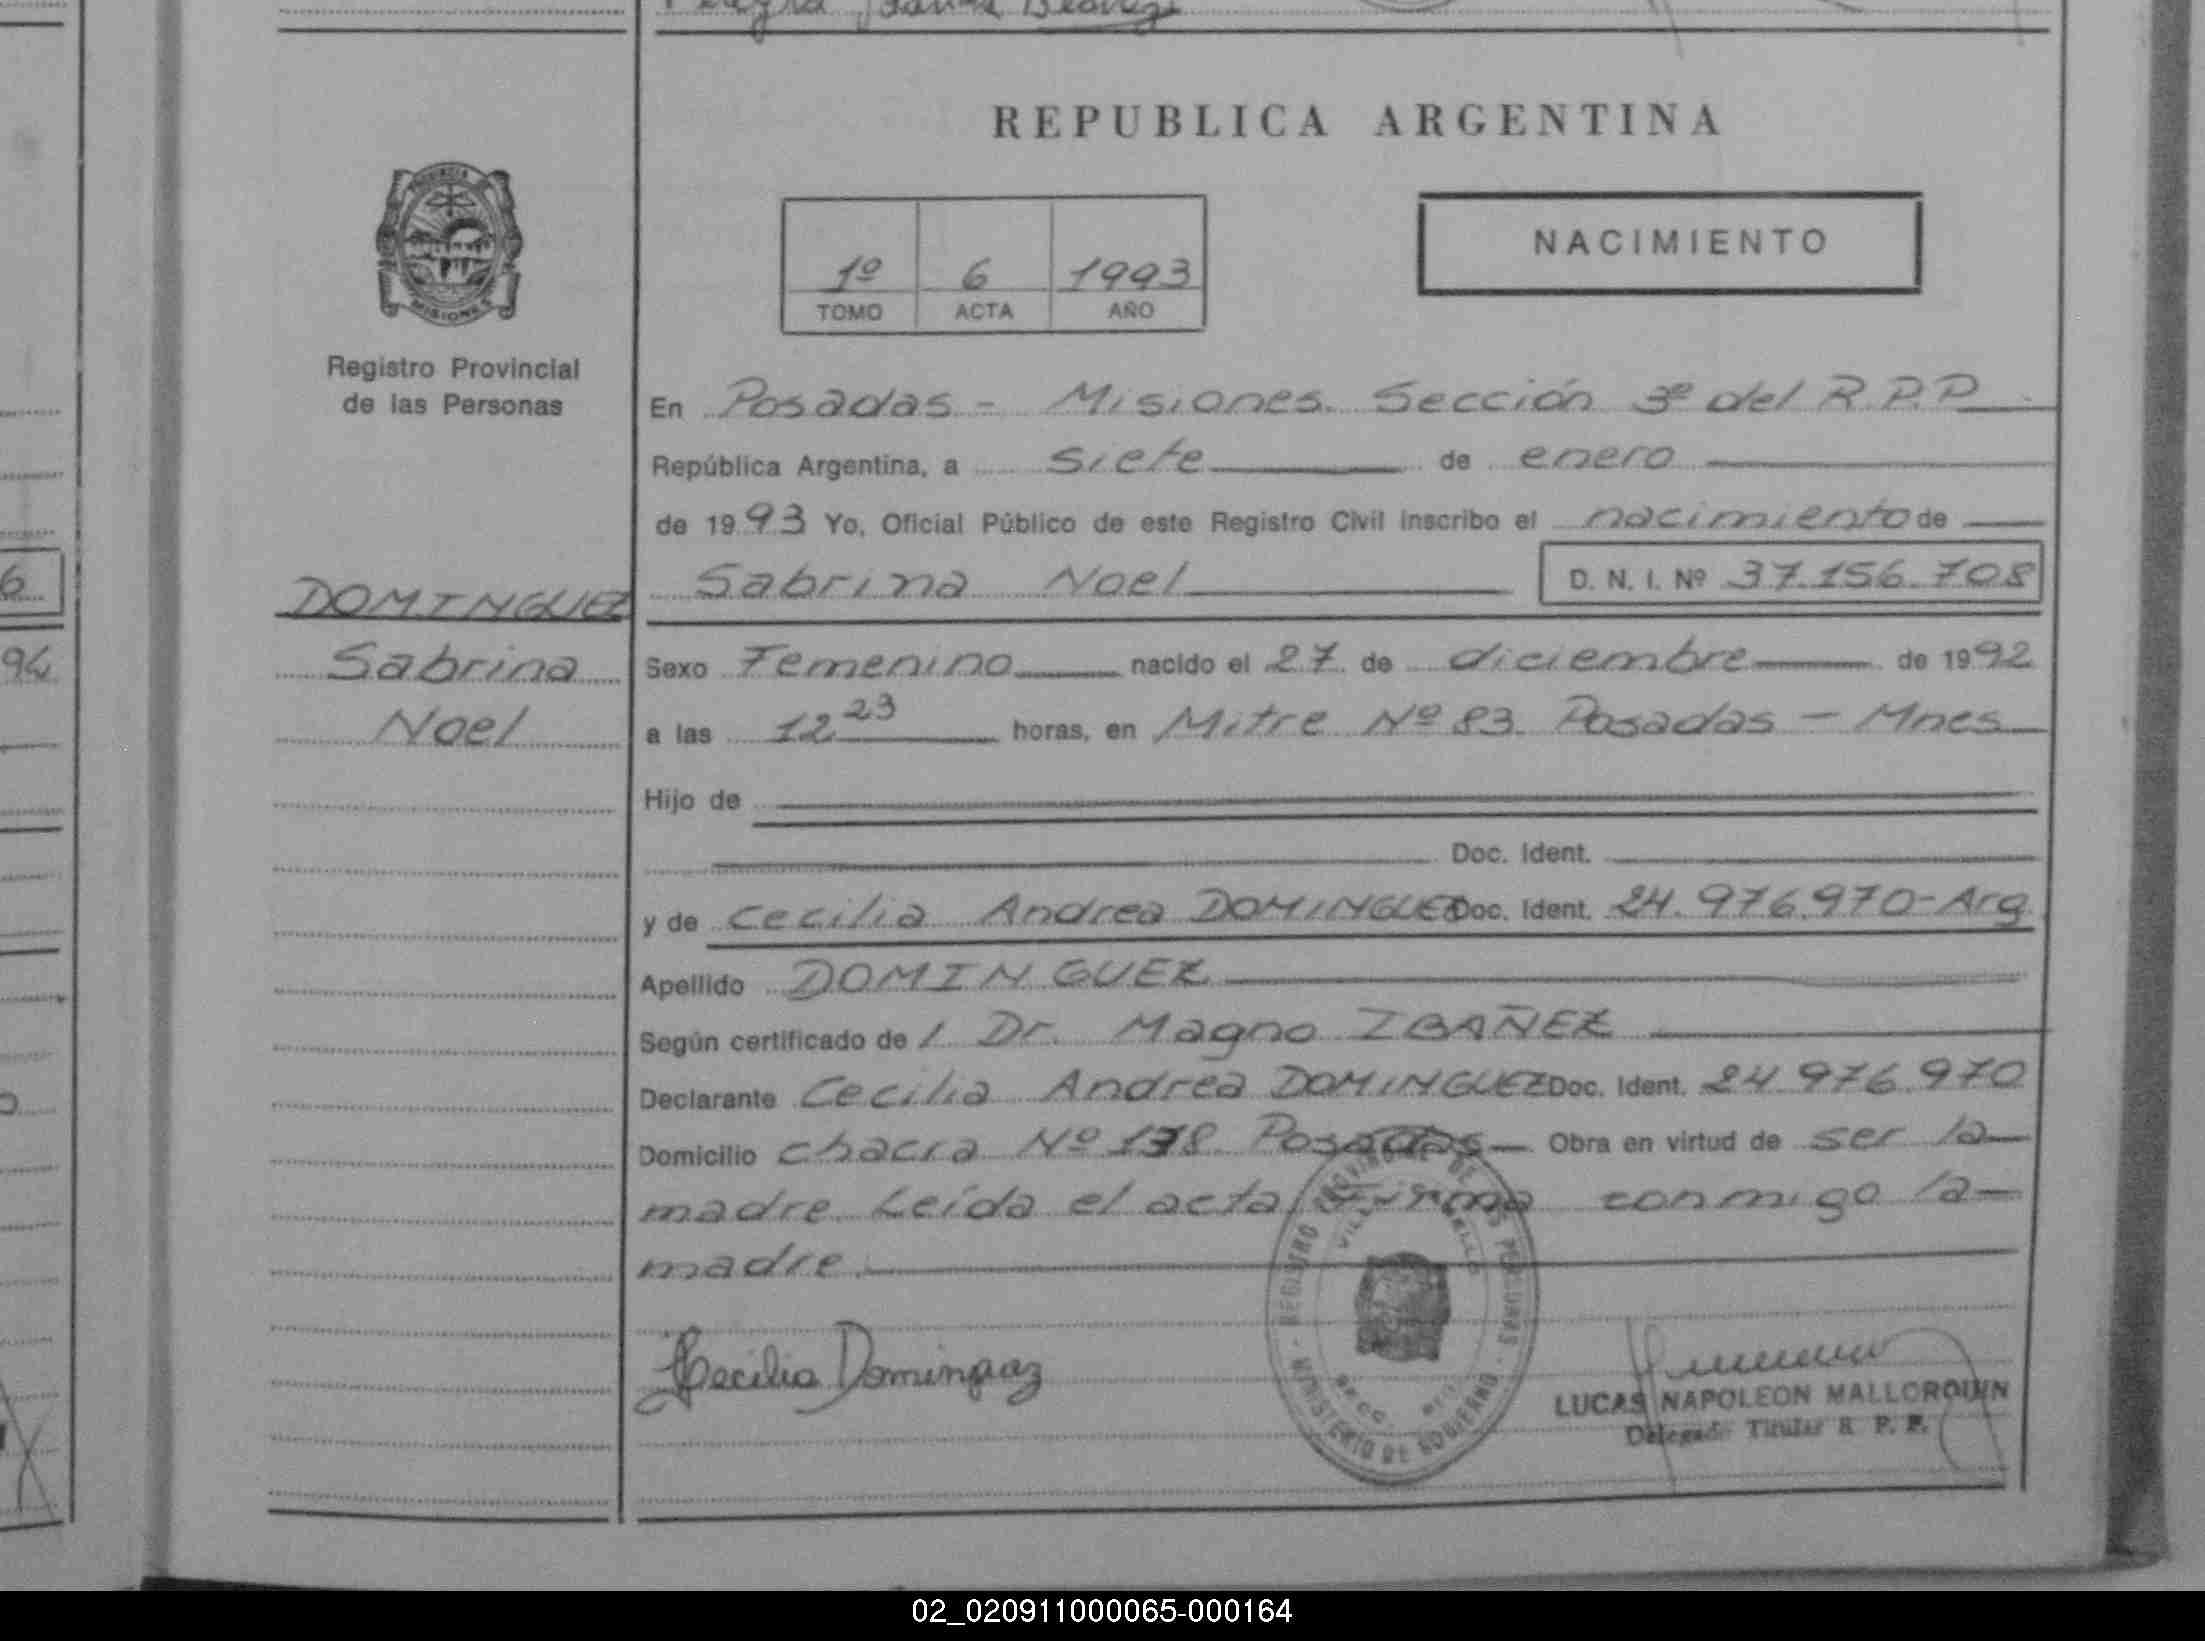 REPUBLICA ARGENTINA
PROVINCIA DE
MISIONES
Registro Provincial
de las Personas
1º 6 1993
TOMO ACTA AÑO
NACIMIENTO
En Posadas - Misiones. Sección 3º del R.P.P
República Argentina, a siete de enero
de 1993 Yo, Oficial Público de este Registro Civil inscribo el nacimiento de
Sabrina Noel D. N. I. Nº 37.156.708
DOMINGUEZ
Sabrina
Noel
Sexo Femenino nacido el 27 de diciembre de 1992
a las 12 23 horas, en Mitre Nº 83. Posadas - Mnes
Hijo de
Doc. Ident.
y de Cecilia Andrea DOMINGUEZ Doc. Ident. 24.976.970-Arg
Apellido DOMINGUEZ
Según certificado de / Dr. Magno IBAÑEZ
Declarante Cecilia Andrea DOMINGUEZ Doc. Ident. 24 976.970
Domicilio chacra Nº 138. Posadas Obra en virtud de ser la
madre. Leída el acta, Firma conmigo la
madre.
REGISTRO PROVINCIAL DE LAS PERSONAS
MINISTERIO DE GOBIERNO
Cecilia Dominguez
LUCAS NAPOLEON MALLORQUIN
Delegado Titular R. P. P.
6
94
02_020911000065-000164